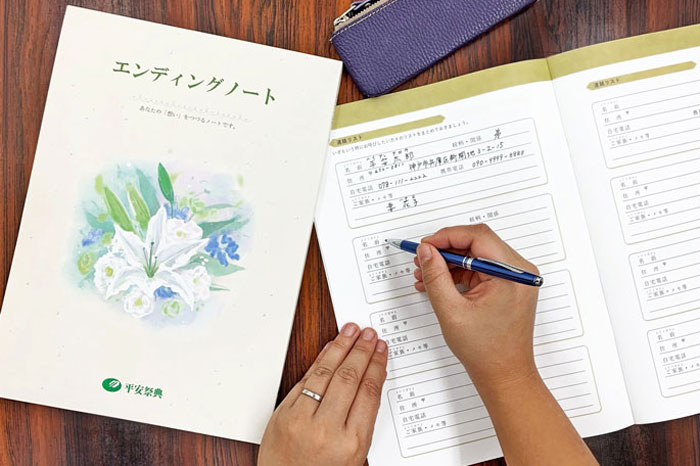 エンディングノート
あなたや「想い」をつづるノートです。
平安祭典
連絡リスト
いざという時にお呼びしたい方々のリストをまとめておきましょう。
名前 平安太郎 続柄・関係 弟
住所 〒 神戸市兵庫区新開地3-2-15
自宅電話 078-111-2222 携帯電話 090-9999-8888
ご家族・メモ等
妻 花子
名前 続柄・関係
住所 〒
自宅電話
ご家族・メモ等
名前
住所 〒
自宅電話
ご家族・メモ等
名前
住所 〒
自宅電話
ご家族・メモ等
連絡リスト
名前
住所 〒
自宅電話
ご家族・メモ等
名前
住所 〒
自宅電話
ご家族・メモ等
名前
住所 〒
自宅電話
ご家族・メモ等
名前
住所 〒
自宅電話
ご家族・メモ等